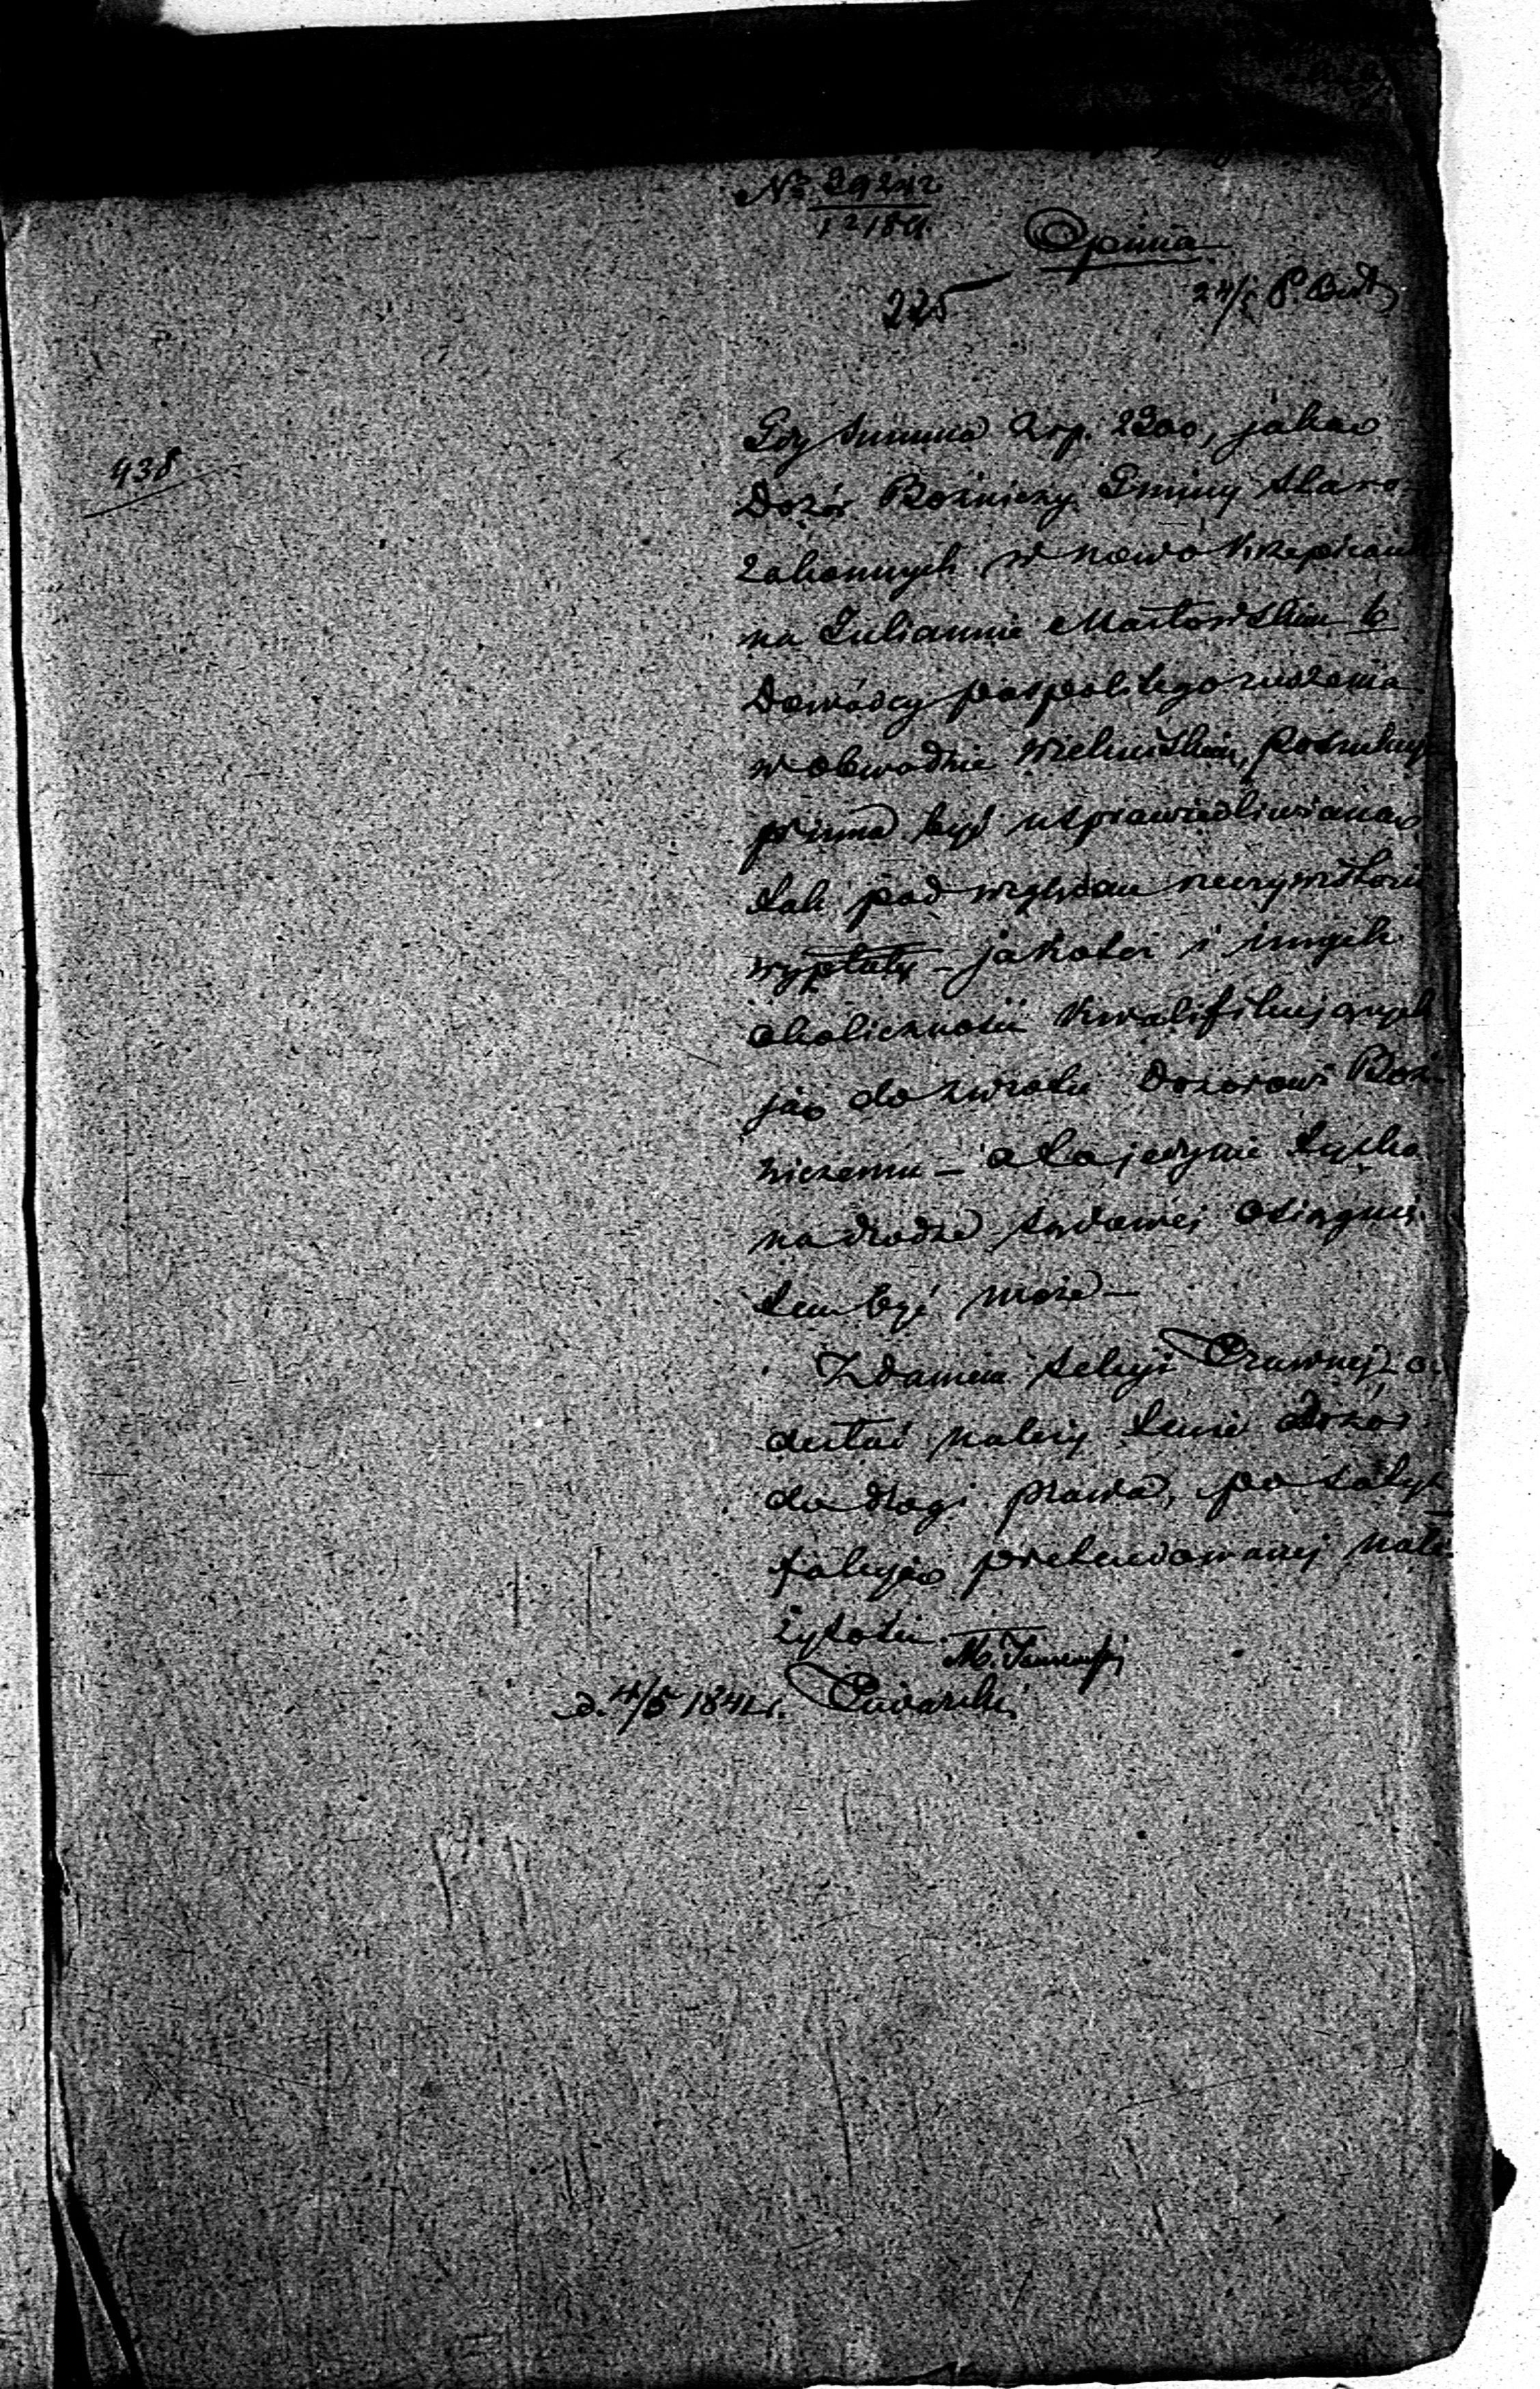 No 29242
12184
Opinia
225
24/5 P.
438
Gdy summa Złp. 2300, jaką
Dozór Bożniczy Gminy Staro
zakonnych w Nowo Krzepicach
na Juliannie Masłowskim b.
Dowódcy pospolitego ruszenia
w obwodzie Wieluńskim, poszukuje
winna być usprawiedliwioną
tak pod względem rzeczywistości
wypłaty – jakoteż i innych
okoliczności kwalifikujących
ją do zwrotu Dozorowi Boż
niczemu – a to jedynie tylko
na drodze sądowej osiągnię
tem być może –
Zdaniem Sekcji Prawnej o
desłać należy tenże Dozór
do drogi prawa, po satys
fakcją pretendowanej nale
żytości.
M.
d. 4/5 1841 r.